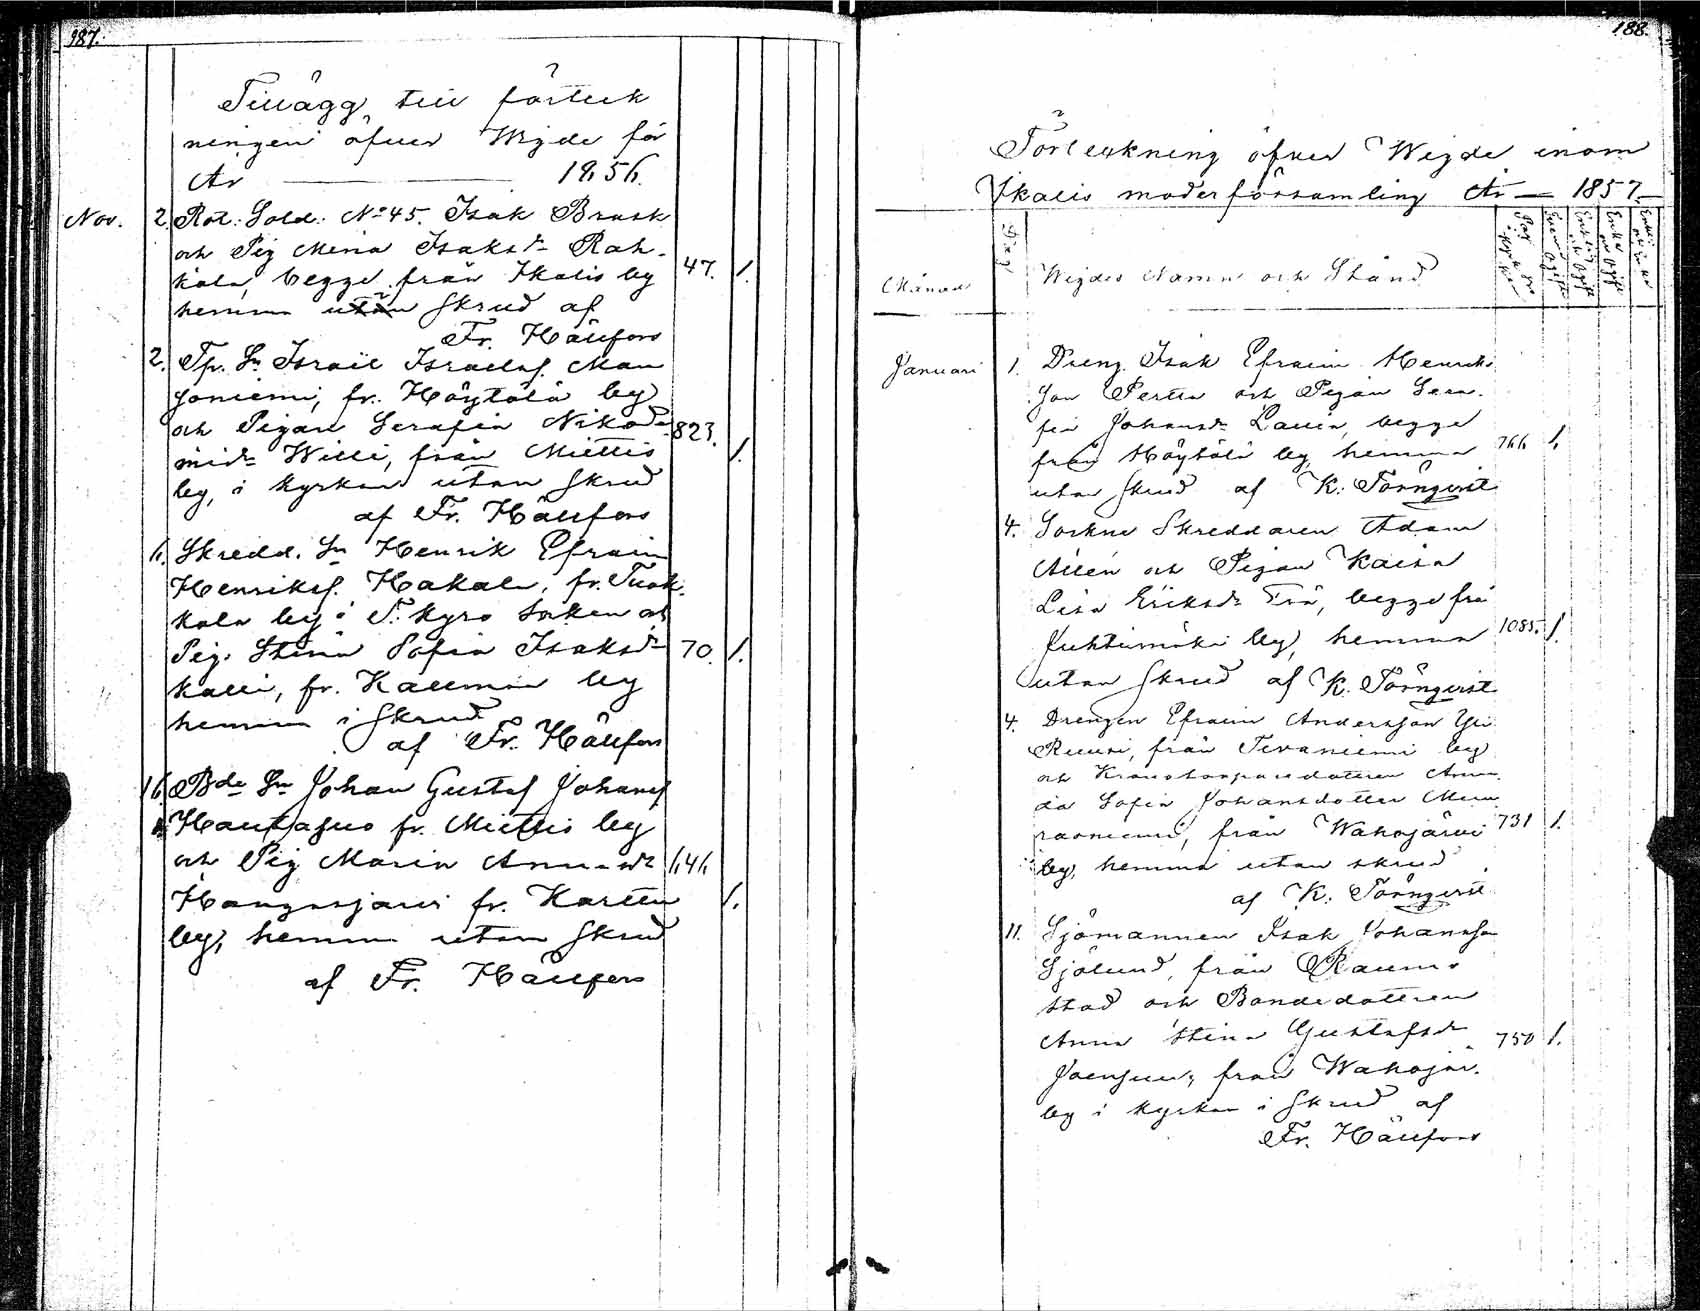 187.
Tillägg till förteck
ningen öfver Wigde för
År — 1856.
Nov. 2. Rot. Sold. No 45. Isak Brask
och Pig Maria Isaksdr Rah-
kala, begge från Ikalis by 47. 1.
hemma i Skrud af
Fr. Hällfors
2. Tp. Sn Israel Israelss. Man
soniemi, fr. Höytölä by
och Pigan Serafia Nikode 823.
midr Willi, från Miettis 1.
by, i kyrkan utan Skrud
af Fr. Hällfors
6. Skredd. Sn Henrik Efraim
Henrikss. Hakala, fr. Tuok
kola by i T. kyro Socken och
Pig. Stina Sofia Isaksdr 70. 1.
Kalli, fr. by
hemma i Skrud
af Fr. Hällfors
16. Bde Sn Johan Gustaf Johanss
fr. Miettis by
och Pig Maria 646
fr. Karttu 1.
by, hemma utan Skrud
af Fr. Hällfors
188.
Förteckning öfver Wigde inom
Ikalis moderförsamling År — 1857.
Månad Dag Wigdes Namn och Stånd
Januari 1. Dreng. Isak Efraim Henriks
son Perttu och Pigan Sera-
fia Johansdr Lauri, begge
från Höytölä by, hemma 766 1.
utan Skrud af K. Törnqvist
4. Sockne Skreddaren Adam
Allén och Pigan Kaisa
Lisa Eriksdr Frå, begge frå
Juhtimäki by, hemma 1085. 1.
utan Skrud af K. Törnqvist
4. Drengen Efraim Andersson Yli
Ruusi, från Tevaniemi by
och Kronotorparedottren Aman
da Sofia Johansdotter Mus
raoniemi, från Wahojärvi 731 1.
by, hemma utan skrud
af K. Törnqvist
11. Sjömannen Isak Johansson
Sjölund, från Raumo
stad och Bondedottren
Anna Stina Gustafsdr 750 1.
Joensuu, från Wahojär.
by i kyrkan i Skrud af
Fr. Hällfors